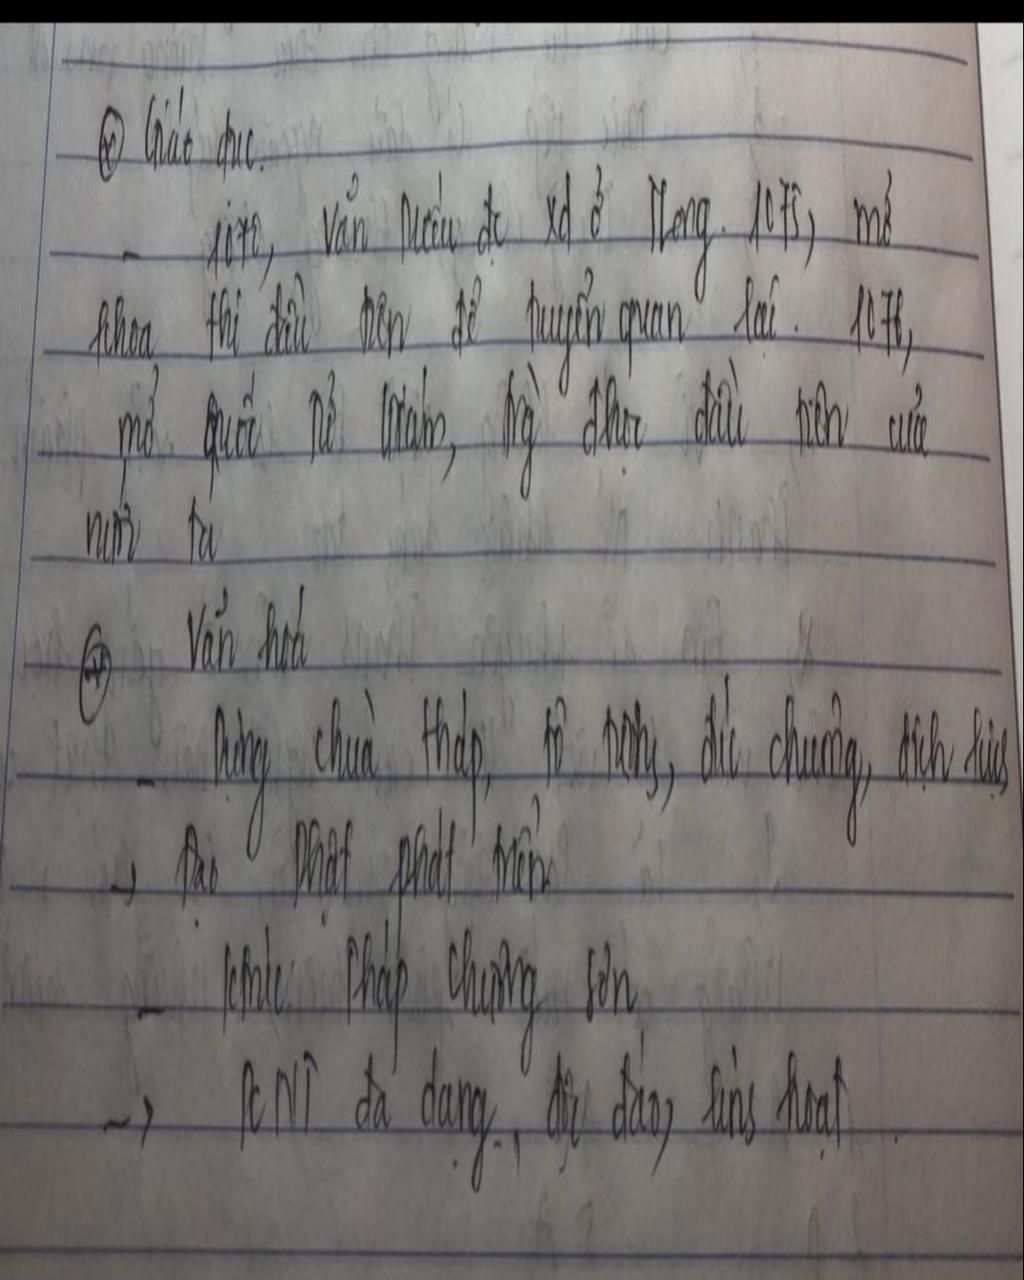 Giáo dục.
- 1070, Văn Miếu đc xd ở TLong. 1075, mở
khoa thi đầu tiên để tuyển quan lại. 1076,
mở quốc Tử Giám, đhọc đầu tiên của
nước ta
Văn hoá
- Dựng chùa tháp, tô tượng, đúc chuông, dịch
→ Đạo Phật phát triển
- tháp Chương Sơn
→ PCNT đa dạng, độc đáo, linh hoạt